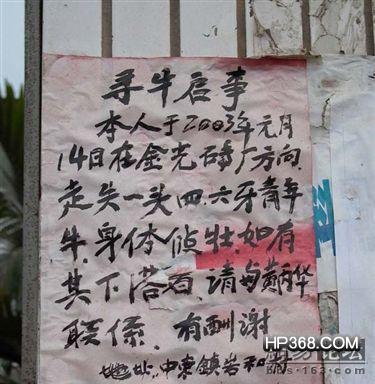 寻牛启事
本人于2003年元月
14日在金光砖厂方向
走失一头四.六牙青年
牛,身体侦壮,如有
其下落者,请与黄
联係,有酬谢
地址:中東鎮岩和
HP368.COM
bbs.163.com